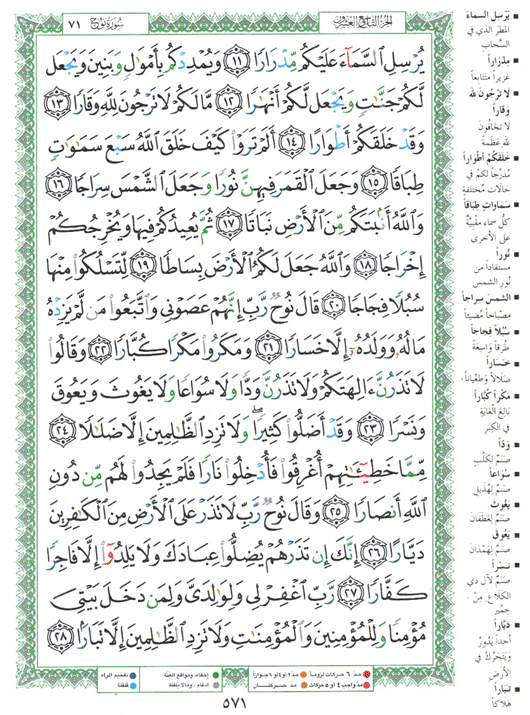 سُورَةُ نُوحٍ
٧١
الجُزْءُ التَّاسِعُ وَالعِشْرُونَ
يُرْسِلِ السَّمَآءَ عَلَيْكُم مِّدْرَارًا ١١ وَيُمْدِدْكُم بِأَمْوَٰلٍ وَبَنِينَ وَيَجْعَل
لَّكُمْ جَنَّـٰتٍ وَيَجْعَل لَّكُمْ أَنْهَـٰرًا ١٢ مَّا لَكُمْ لَا تَرْجُونَ لِلَّهِ وَقَارًا ١٣
وَقَدْ خَلَقَكُمْ أَطْوَارًا ١٤ أَلَمْ تَرَوْا۟ كَيْفَ خَلَقَ ٱللَّهُ سَبْعَ سَمَـٰوَٰتٍ
طِبَاقًا ١٥ وَجَعَلَ ٱلْقَمَرَ فِيهِنَّ نُورًا وَجَعَلَ ٱلشَّمْسَ سِرَاجًا ١٦
وَٱللَّهُ أَنۢبَتَكُم مِّنَ ٱلْأَرْضِ نَبَاتًا ١٧ ثُمَّ يُعِيدُكُمْ فِيهَا وَيُخْرِجُكُمْ
إِخْرَاجًا ١٨ وَٱللَّهُ جَعَلَ لَكُمُ ٱلْأَرْضَ بِسَاطًا ١٩ لِّتَسْلُكُوا۟ مِنْهَا
سُبُلًا فِجَاجًا ٢٠ قَالَ نُوحٌ رَّبِّ إِنَّهُمْ عَصَوْنِى وَٱتَّبَعُوا۟ مَن لَّمْ يَزِدْهُ
مَالُهُۥ وَوَلَدُهُۥٓ إِلَّا خَسَارًا ٢١ وَمَكَرُوا۟ مَكْرًا كُبَّارًا ٢٢ وَقَالُوا۟
لَا تَذَرُنَّ ءَالِهَتَكُمْ وَلَا تَذَرُنَّ وَدًّا وَلَا سُوَاعًا وَلَا يَغُوثَ وَيَعُوقَ
وَنَسْرًا ٢٣ وَقَدْ أَضَلُّوا۟ كَثِيرًا ۖ وَلَا تَزِدِ ٱلظَّـٰلِمِينَ إِلَّا ضَلَـٰلًا ٢٤
مِّمَّا خَطِيٓـَٔـٰتِهِمْ أُغْرِقُوا۟ فَأُدْخِلُوا۟ نَارًا فَلَمْ يَجِدُوا۟ لَهُم مِّن دُونِ
ٱللَّهِ أَنصَارًا ٢٥ وَقَالَ نُوحٌ رَّبِّ لَا تَذَرْ عَلَى ٱلْأَرْضِ مِنَ ٱلْكَـٰفِرِينَ
دَيَّارًا ٢٦ إِنَّكَ إِن تَذَرْهُمْ يُضِلُّوا۟ عِبَادَكَ وَلَا يَلِدُوٓا۟ إِلَّا فَاجِرًا
كَفَّارًا ٢٧ رَّبِّ ٱغْفِرْ لِى وَلِوَٰلِدَىَّ وَلِمَن دَخَلَ بَيْتِىَ
مُؤْمِنًا وَلِلْمُؤْمِنِينَ وَٱلْمُؤْمِنَـٰتِ وَلَا تَزِدِ ٱلظَّـٰلِمِينَ إِلَّا تَبَارًۢا ٢٨
يُرْسِلِ السَّمَاءَ
المطرَ الذي في
السَّحاب
مِدْرَاراً
غزيراً متتابعاً
لَا تَرْجُونَ لِلَّهِ
وَقَاراً
لا تخافُونَ
لله عظمة
خَلَقَكُمْ أَطْوَاراً
مُدَرِّجاً لكمْ في
حالاتٍ مُختلفة
سَمَاوَاتٍ طِبَاقاً
كلُّ سماءٍ مقبيَّةٌ
على الأخرى
نُوراً
مستفاداً من
نُورِ الشمس
الشَّمْسَ سِرَاجاً
مِصْباحاً مُضيئاً
سُبُلاً فِجَاجاً
طُرقاً واسِعَةً
خَسَاراً
ضَلالاً وَطُغياناً
مَكْراً كُبَّاراً
بَالِغَ الغَايَةِ
في الكِبَر
وَدًّا
صَنَمٌ لكَلْبٍ
سُوَاعاً
صَنَمٌ لِهُذَيْلٍ
يَغُوثَ
صَنَمٌ لِغَطَفَانَ
يَعُوقَ
صَنَمٌ لِهَمْدَانَ
نَسْراً
صَنَمٌ لآلِ ذي
الكَلَاعِ مِنْ
حِمْيَر
دَيَّاراً
أحداً يَدُورُ
ويَتَحَرَّكُ في
الأرْضِ
تَبَاراً
هَلَاكاً
مدّ ٦ حركات لزوماً
مدّ ٢ او ٤ او ٦ جوازاً
إخفاء، ومواقع الغُنَّة
تفخيم الراء
مدّ واجب ٤ او ٥ حركات
مدّ حركتان
ادغام، ومالا يُلفظ
قلقلة
٥٧١